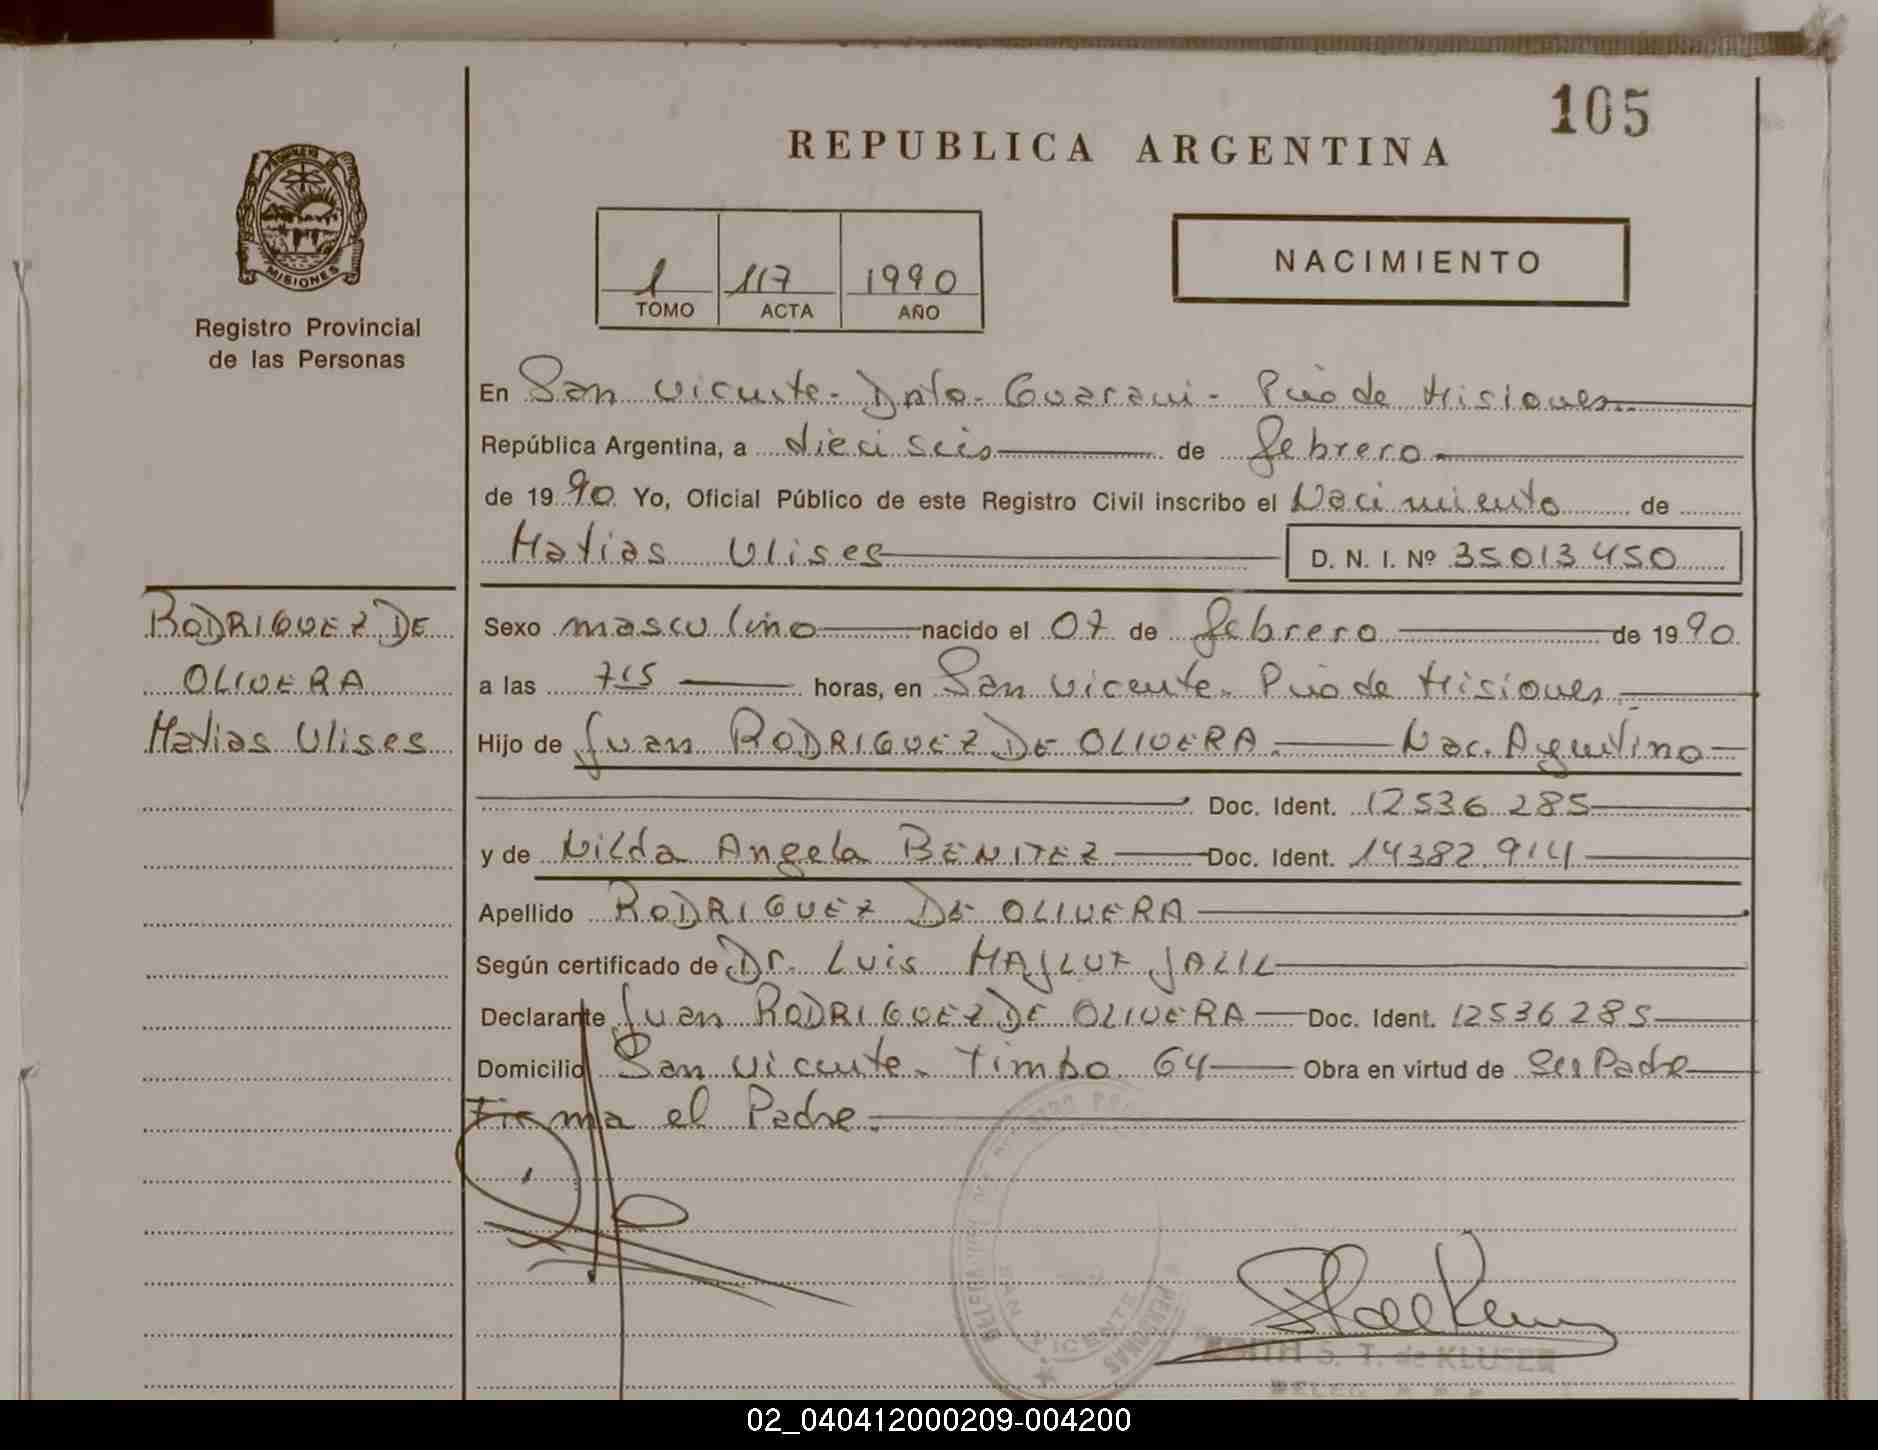 105
REPUBLICA ARGENTINA
MISIONES
Registro Provincial
de las Personas
1 117 1990
TOMO ACTA AÑO
NACIMIENTO
En San Vicente - Dpto - Guarani - Pcia de Misiones
República Argentina, a dieci seis de febrero
de 1990 Yo, Oficial Público de este Registro Civil inscribo el Nacimiento de
Matias Ulises D. N. I. Nº 35013450
RODRIGUEZ DE
OLIVERA
Matias Ulises
Sexo masculino nacido el 07 de febrero de 1990
a las 715 horas, en San Vicente - Pcia de Misiones
Hijo de Juan RODRIGUEZ DE OLIVERA. Nac. Argentino
Doc. Ident. 12536285
y de Nilda Angela BENITEZ Doc. Ident. 14382914
Apellido RODRIGUEZ DE OLIVERA
Según certificado de Dr. Luis MAJLUF JALIL
Declarante Juan RODRIGUEZ DE OLIVERA Doc. Ident. 12536285
Domicilio San Vicente - Timbo 64 Obra en virtud de Ser Padre
Firma el Padre.
SAN VICENTE
S. T. de KLUSEN
02_040412000209-004200